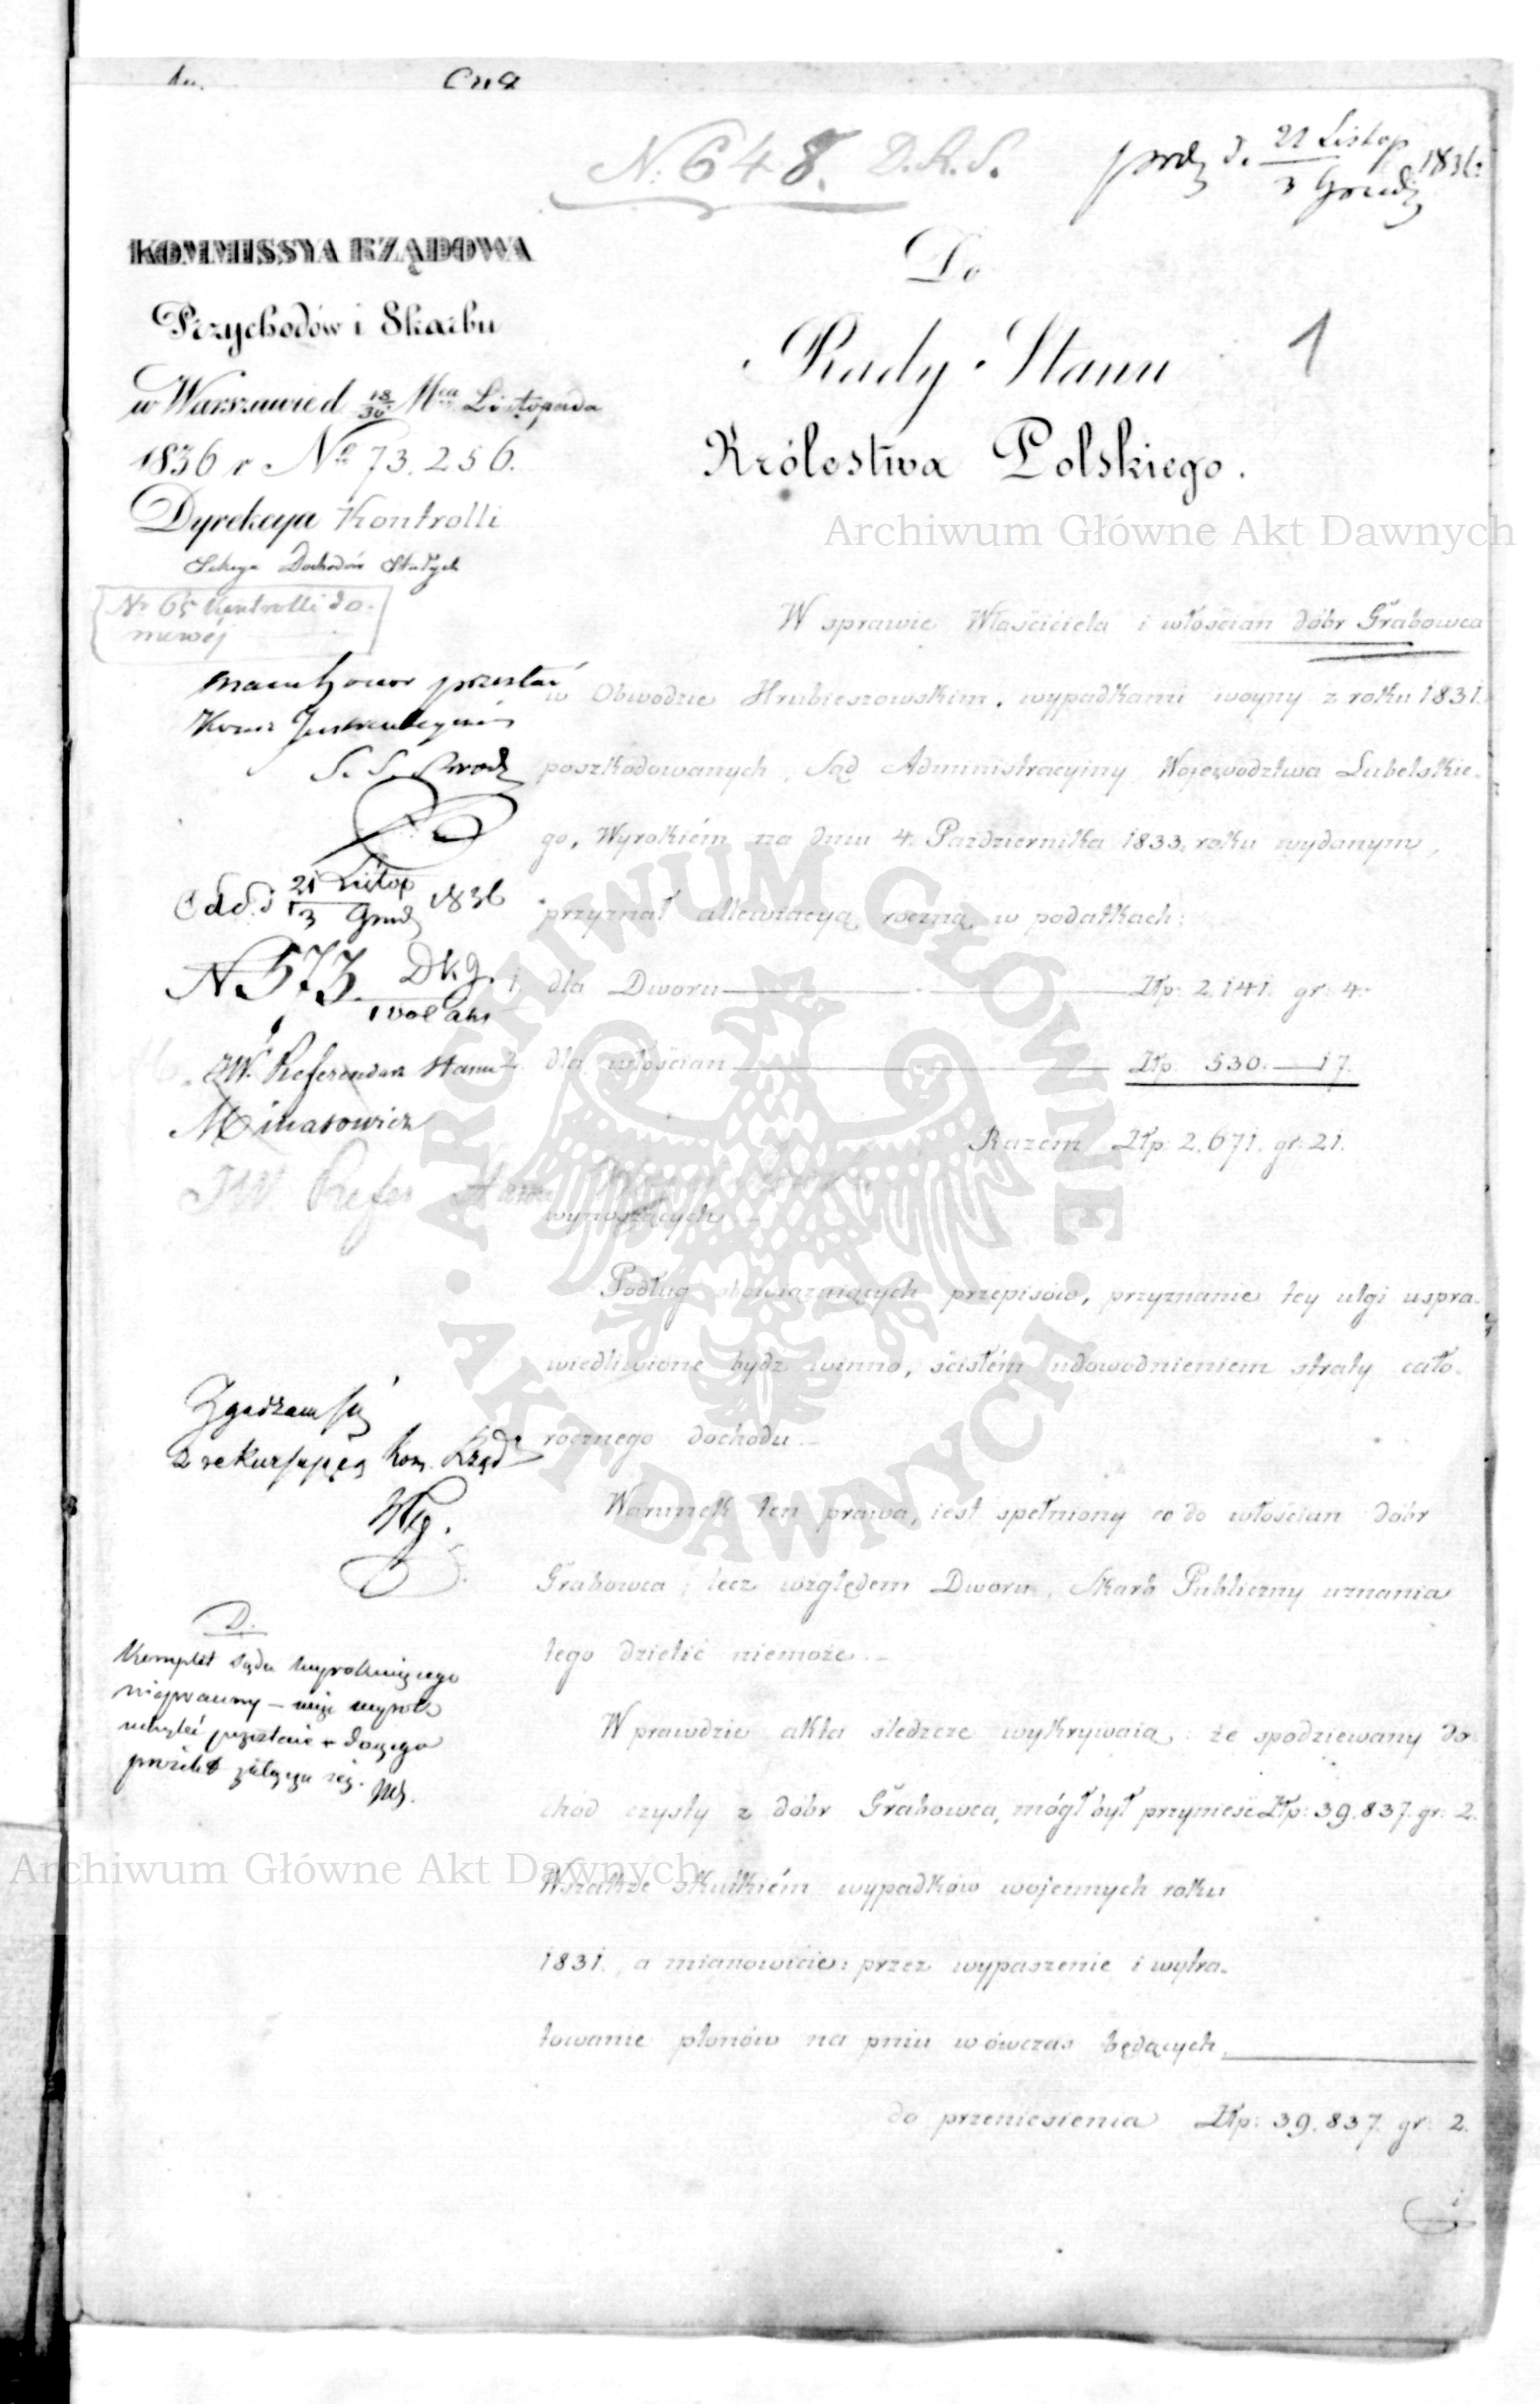 N. 648. D.R.S.
prdz d. 21 Listop / 3 Grudz 1836
KOMMISSYA RZĄDOWA
Przychodów i Skarbu
w Warszawie d 18/30 Mca Listopada
1836 r Nr 73.256.
Dyrekcya Kontrolli
Sekcya Dochodów Stałych
Nr 65 Kontrolli do-
mowéj
Do
Rady Stanu
1
Królestwa Polskiego.
Archiwum Główne Akt Dawnych
przesłać
S. S. Prodz
Odd. d 21 Listop / 3 Grudz 1836
N 573 Dkg.
1 vol akt
JW. Referendarz Stanu
Minasowicz
JW. Refer Stanu
Zgadzam się
z rekursującą Kom. Rząd
D.
Komplet Sądu wyrokującego
W sprawie Właściciela i włościan dóbr Grabowca
w Obwodzie Hrubieszowskim, wypadkami woyny z roku 1831.
poszkodowanych, Sąd Administracyiny Województwa Lubelskie-
go, Wyrokiém na dniu 4. Pazdziernika 1833. roku wydanym,
przyznał allewiacyą roczną w podatkach:
1. dla Dworu Złp: 2.141. gr: 4.
2. dla włościan Złp: 530. — 17.
Razem Złp: 2.671. gr: 21.
wynoszących —
Podług obowiązuiących przepisów, przyznanie tey ulgi uspra-
wiedliwione bydz winno, ścisłém udowodnieniem straty cało-
rocznego dochodu. —
Warunek ten prawa, iest spełniony co do włościan dóbr
Grabowca; lecz względem Dworu, Skarb Publiczny uznania
tego dzielić niemoże. —
W prawdzie akta śledzcze wykrywaią: że spodziewany do-
chód czysty z dóbr Grabowca, mógł był przynieść Złp: 39.837. gr: 2.
Archiwum Główne Akt Dawnych
Wszakże skutkiém wypadków wojennych roku
1831., a mianowicie: przez wypaszenie i wytra-
towanie plonów na pniu wówczas będących,
do przeniesienia Złp: 39.837. gr: 2.
i
ARCHIWUM GŁÓWNE
AKT DAWNYCH